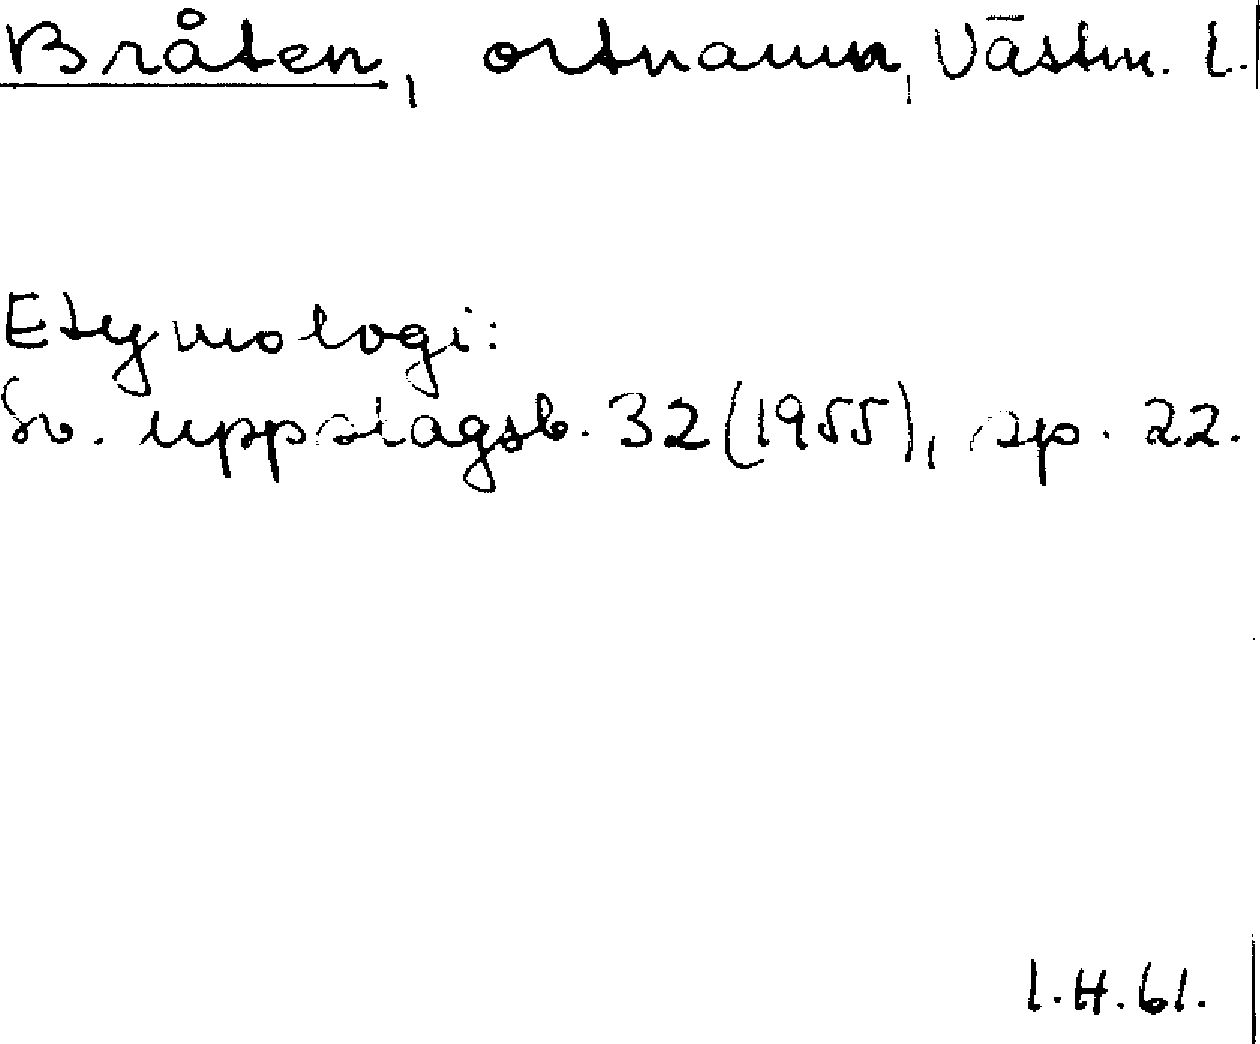 Bråten, ortnamn, Västm. l.
Etymologi:
Sv. uppslagsb. 32 (1955), sp. 22.
I.H. 61.